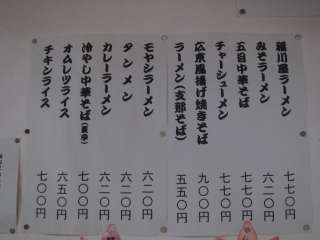 稲川屋ラーメン 七七〇円
みそラーメン 六二〇円
五目中華 七七〇円
チャーシューメン 七七〇円
広東風揚げ焼きそば 九〇〇円
ラーメン(支那そば) 五五〇円
モヤシラーメン 六二〇円
タンメン 六二〇円
カレーラーメン 六二〇円
冷やし中華そば(夏季) 七〇〇円
オムレツライス 六五〇円
チキンライス 七〇〇円